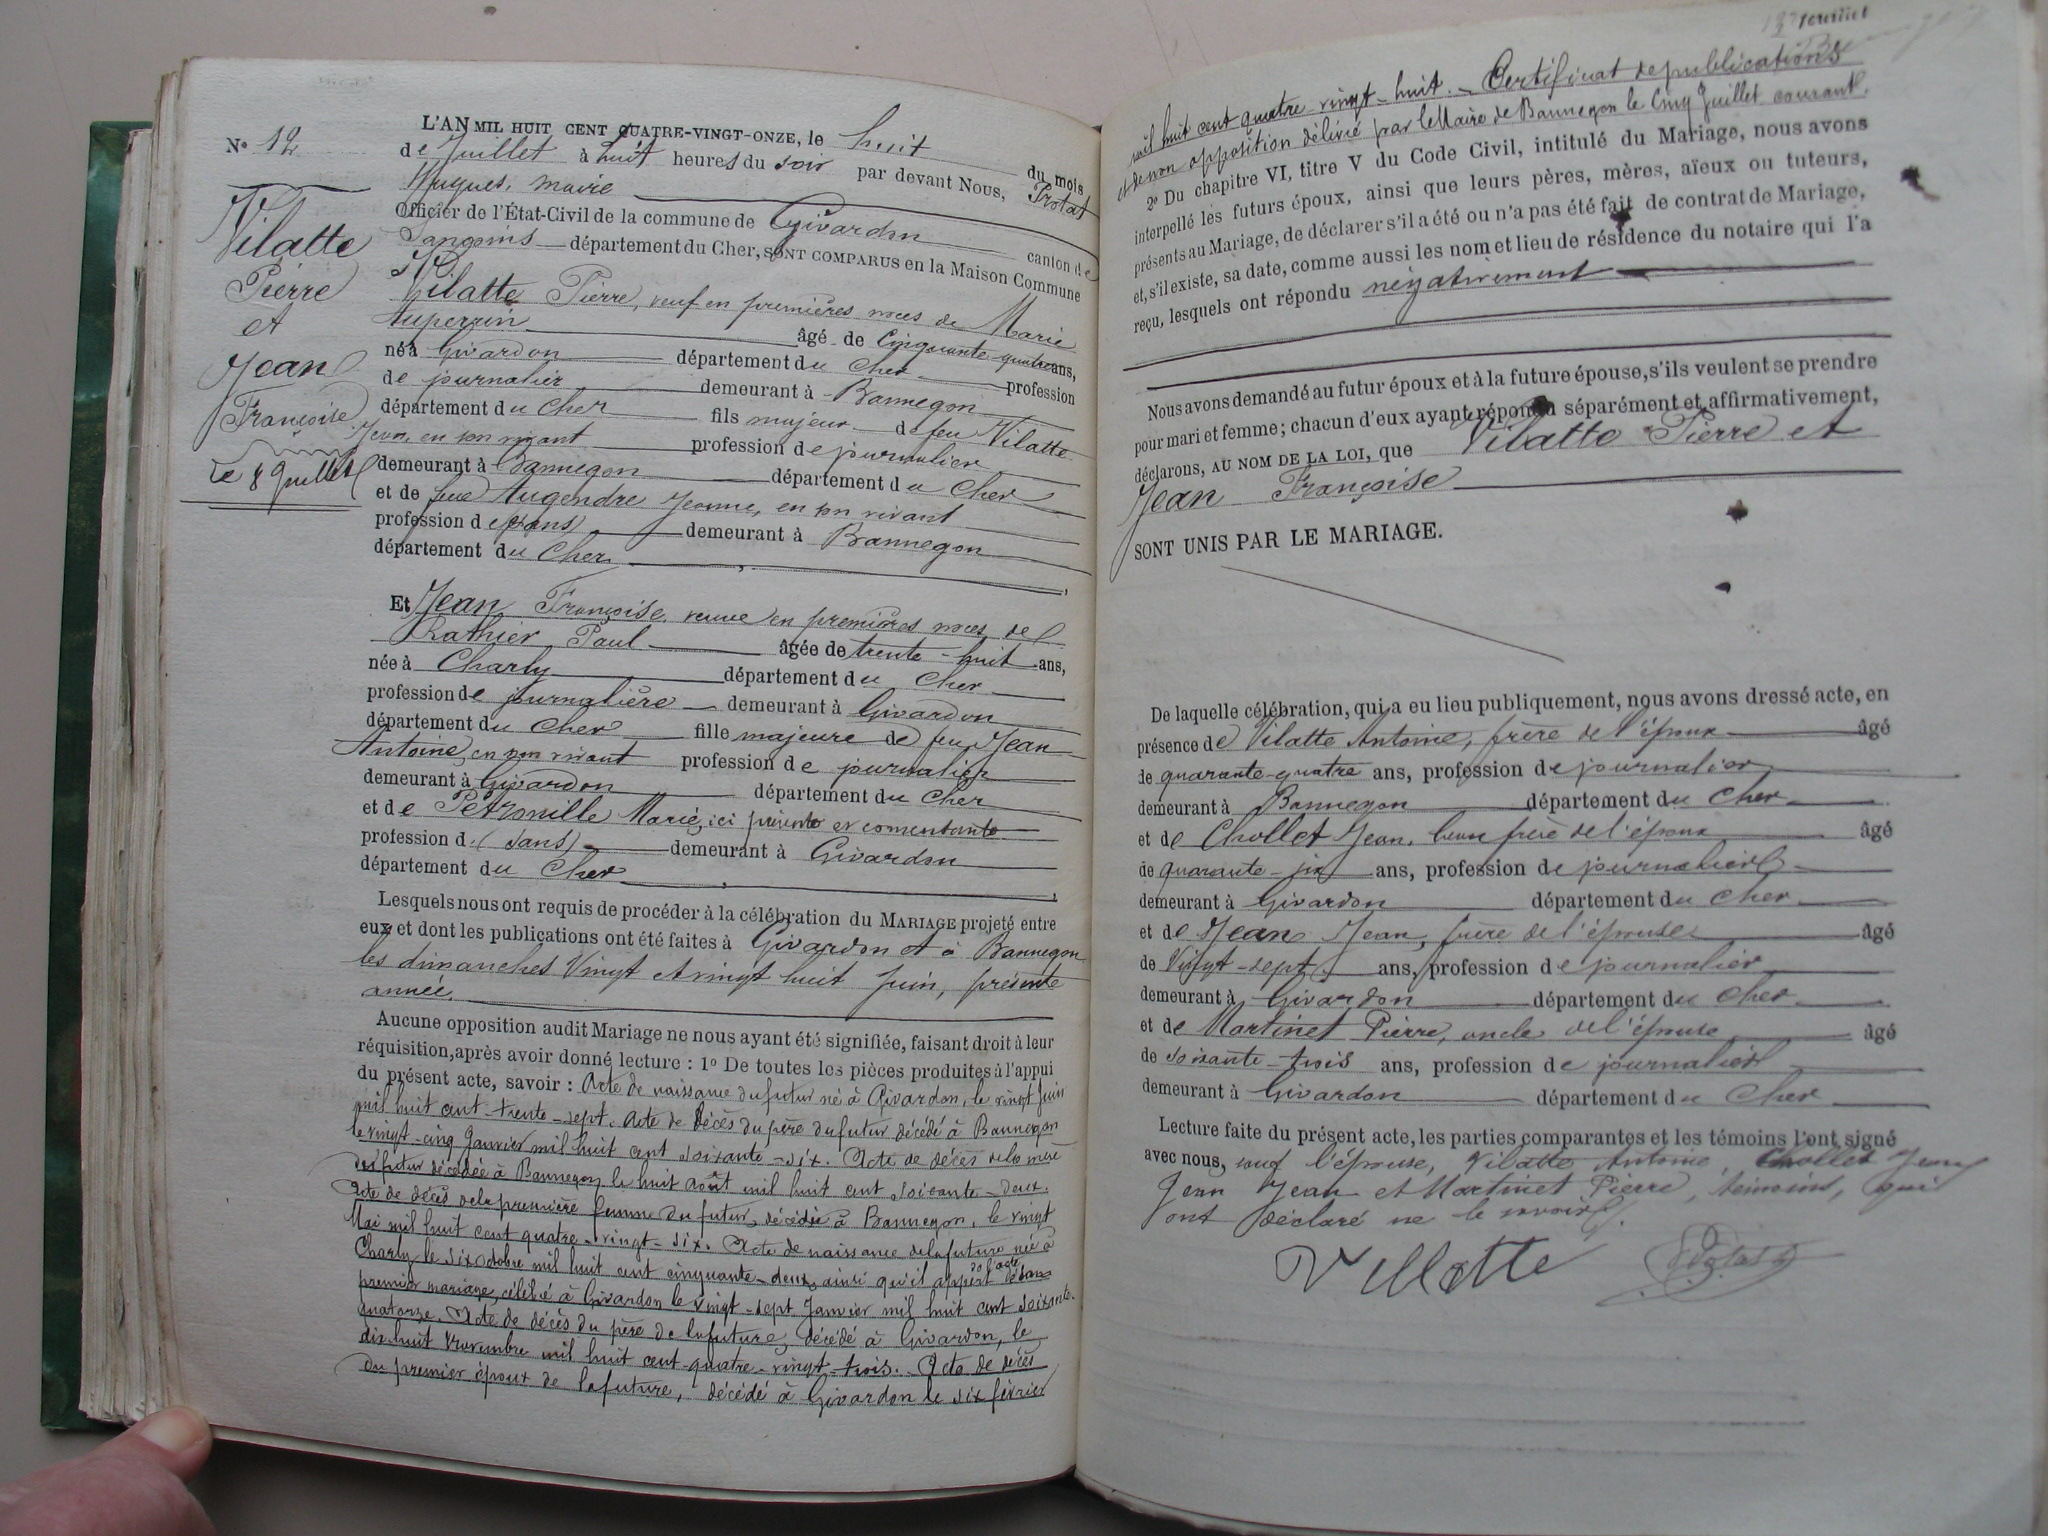 N° 12
Vilatte
Pierre
et
Jean
Françoise
Le 8 Juillet
L'AN MIL HUIT CENT QUATRE-VINGT-ONZE, le huit du mois
de Juillet à huit heures du soir par devant Nous, Protat
Hugues, maire
Officier de l'État-Civil de la commune de Givardon canton de
Sancoins département du Cher, SONT COMPARUS en la Maison Commune
Vilatte Pierre, veuf en premières noces de Marie
Auperrin âgé de Cinquante-quatre ans,
né à Givardon département du Cher profession
de journalier demeurant à Bannegon
département du Cher fils majeur de feu Vilatte
Jean, en son vivant profession de journalier
demeurant à Bannegon département du Cher
et de feue Augendre Jeanne, en son vivant
profession de (sans) demeurant à Bannegon
département du Cher,
Et Jean Françoise, veuve en premières noces de
Rathier Paul âgée de trente-huit ans,
née à Charly département du Cher
profession de journalière demeurant à Givardon
département du Cher fille majeure de feu Jean
Antoine, en son vivant profession de journalier
demeurant à Givardon département du Cher
et de Pétronille Marie, ici présente et consentante
profession d (sans) demeurant à Givardon
département du Cher,
Lesquels nous ont requis de procéder à la célébration du MARIAGE projeté entre
eux et dont les publications ont été faites à Givardon et à Bannegon
les dimanches Vingt et vingt huit Juin, présente
année.
Aucune opposition audit Mariage ne nous ayant été signifiée, faisant droit à leur
réquisition, après avoir donné lecture : 1° De toutes les pièces produites à l'appui
du présent acte, savoir : Acte de naissance du futur né à Givardon, le vingt Juin
mil huit cent trente-sept. Acte de décès du père du futur décédé à Bannegon
le vingt-cinq Janvier mil huit cent soixante-six. Acte de décès de la mère
du futur décédée à Bannegon le huit août mil huit cent soixante-deux.
Acte de décès de la première femme du futur, décédée à Bannegon, le vingt
Mai mil huit cent quatre-vingt-six. Acte de naissance de la future née à
Charly le six octobre mil huit cent cinquante-deux, ainsi qu'il appert de l'acte
premier mariage, célébré à Givardon le vingt-sept Janvier mil huit cent soixante-
quatorze. Acte de décès du père de la future, décédé à Givardon, le
dix-huit Novembre mil huit cent quatre-vingt-trois. Acte de décès
du premier époux de la future, décédé à Givardon le six février
mil huit cent quatre-vingt-huit. - Certificat de publications
et de non opposition délivré par le Maire de Bannegon le Cinq Juillet courant.
2° Du chapitre VI, titre V du Code Civil, intitulé du Mariage, nous avons
interpellé les futurs époux, ainsi que leurs pères, mères, aïeux ou tuteurs,
présents au Mariage, de déclarer s'il a été ou n'a pas été fait de contrat de Mariage,
et, s'il existe, sa date, comme aussi les nom et lieu de résidence du notaire qui l'a
reçu, lesquels ont répondu négativement
Nous avons demandé au futur époux et à la future épouse, s'ils veulent se prendre
pour mari et femme ; chacun d'eux ayant répondu séparément et affirmativement,
déclarons, AU NOM DE LA LOI, que Vilatte Pierre et
Jean Françoise
SONT UNIS PAR LE MARIAGE.
De laquelle célébration, qui a eu lieu publiquement, nous avons dressé acte, en
présence de Vilatte Antoine, frère de l'époux âgé
de quarante-quatre ans, profession de journalier
demeurant à Bannegon département du Cher
et de Chollet Jean, beau frère de l'époux âgé
de quarante-six ans, profession de journalier
demeurant à Givardon département du Cher
et de Jean Jean, frère de l'épouse âgé
de Vingt-sept ans, profession de journalier
demeurant à Givardon département du Cher
et de Martinet Pierre, oncle de l'épouse âgé
de soixante-trois ans, profession de journalier
demeurant à Givardon département du Cher
Lecture faite du présent acte, les parties comparantes et les témoins l'ont signé
avec nous, sauf l'épouse, Vilatte Antoine, Chollet Jean,
Jean Jean et Martinet Pierre, témoins, qui
ont déclaré ne le savoir.
Villatte Protat